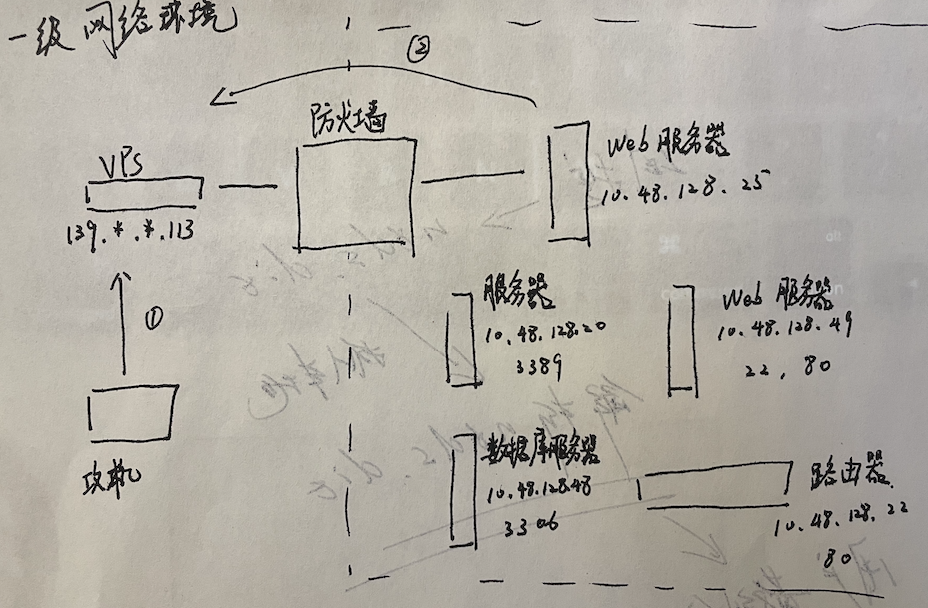 一级网络环境
②
防火墙
VPS
139.*.*.113
Web 服务器
10.48.128.25
①
攻机
服务器
10.48.128.20
3389
Web 服务器
10.48.128.49
22,80
数据库服务器
10.48.128.48
3306
路由器
10.48.128.22
80